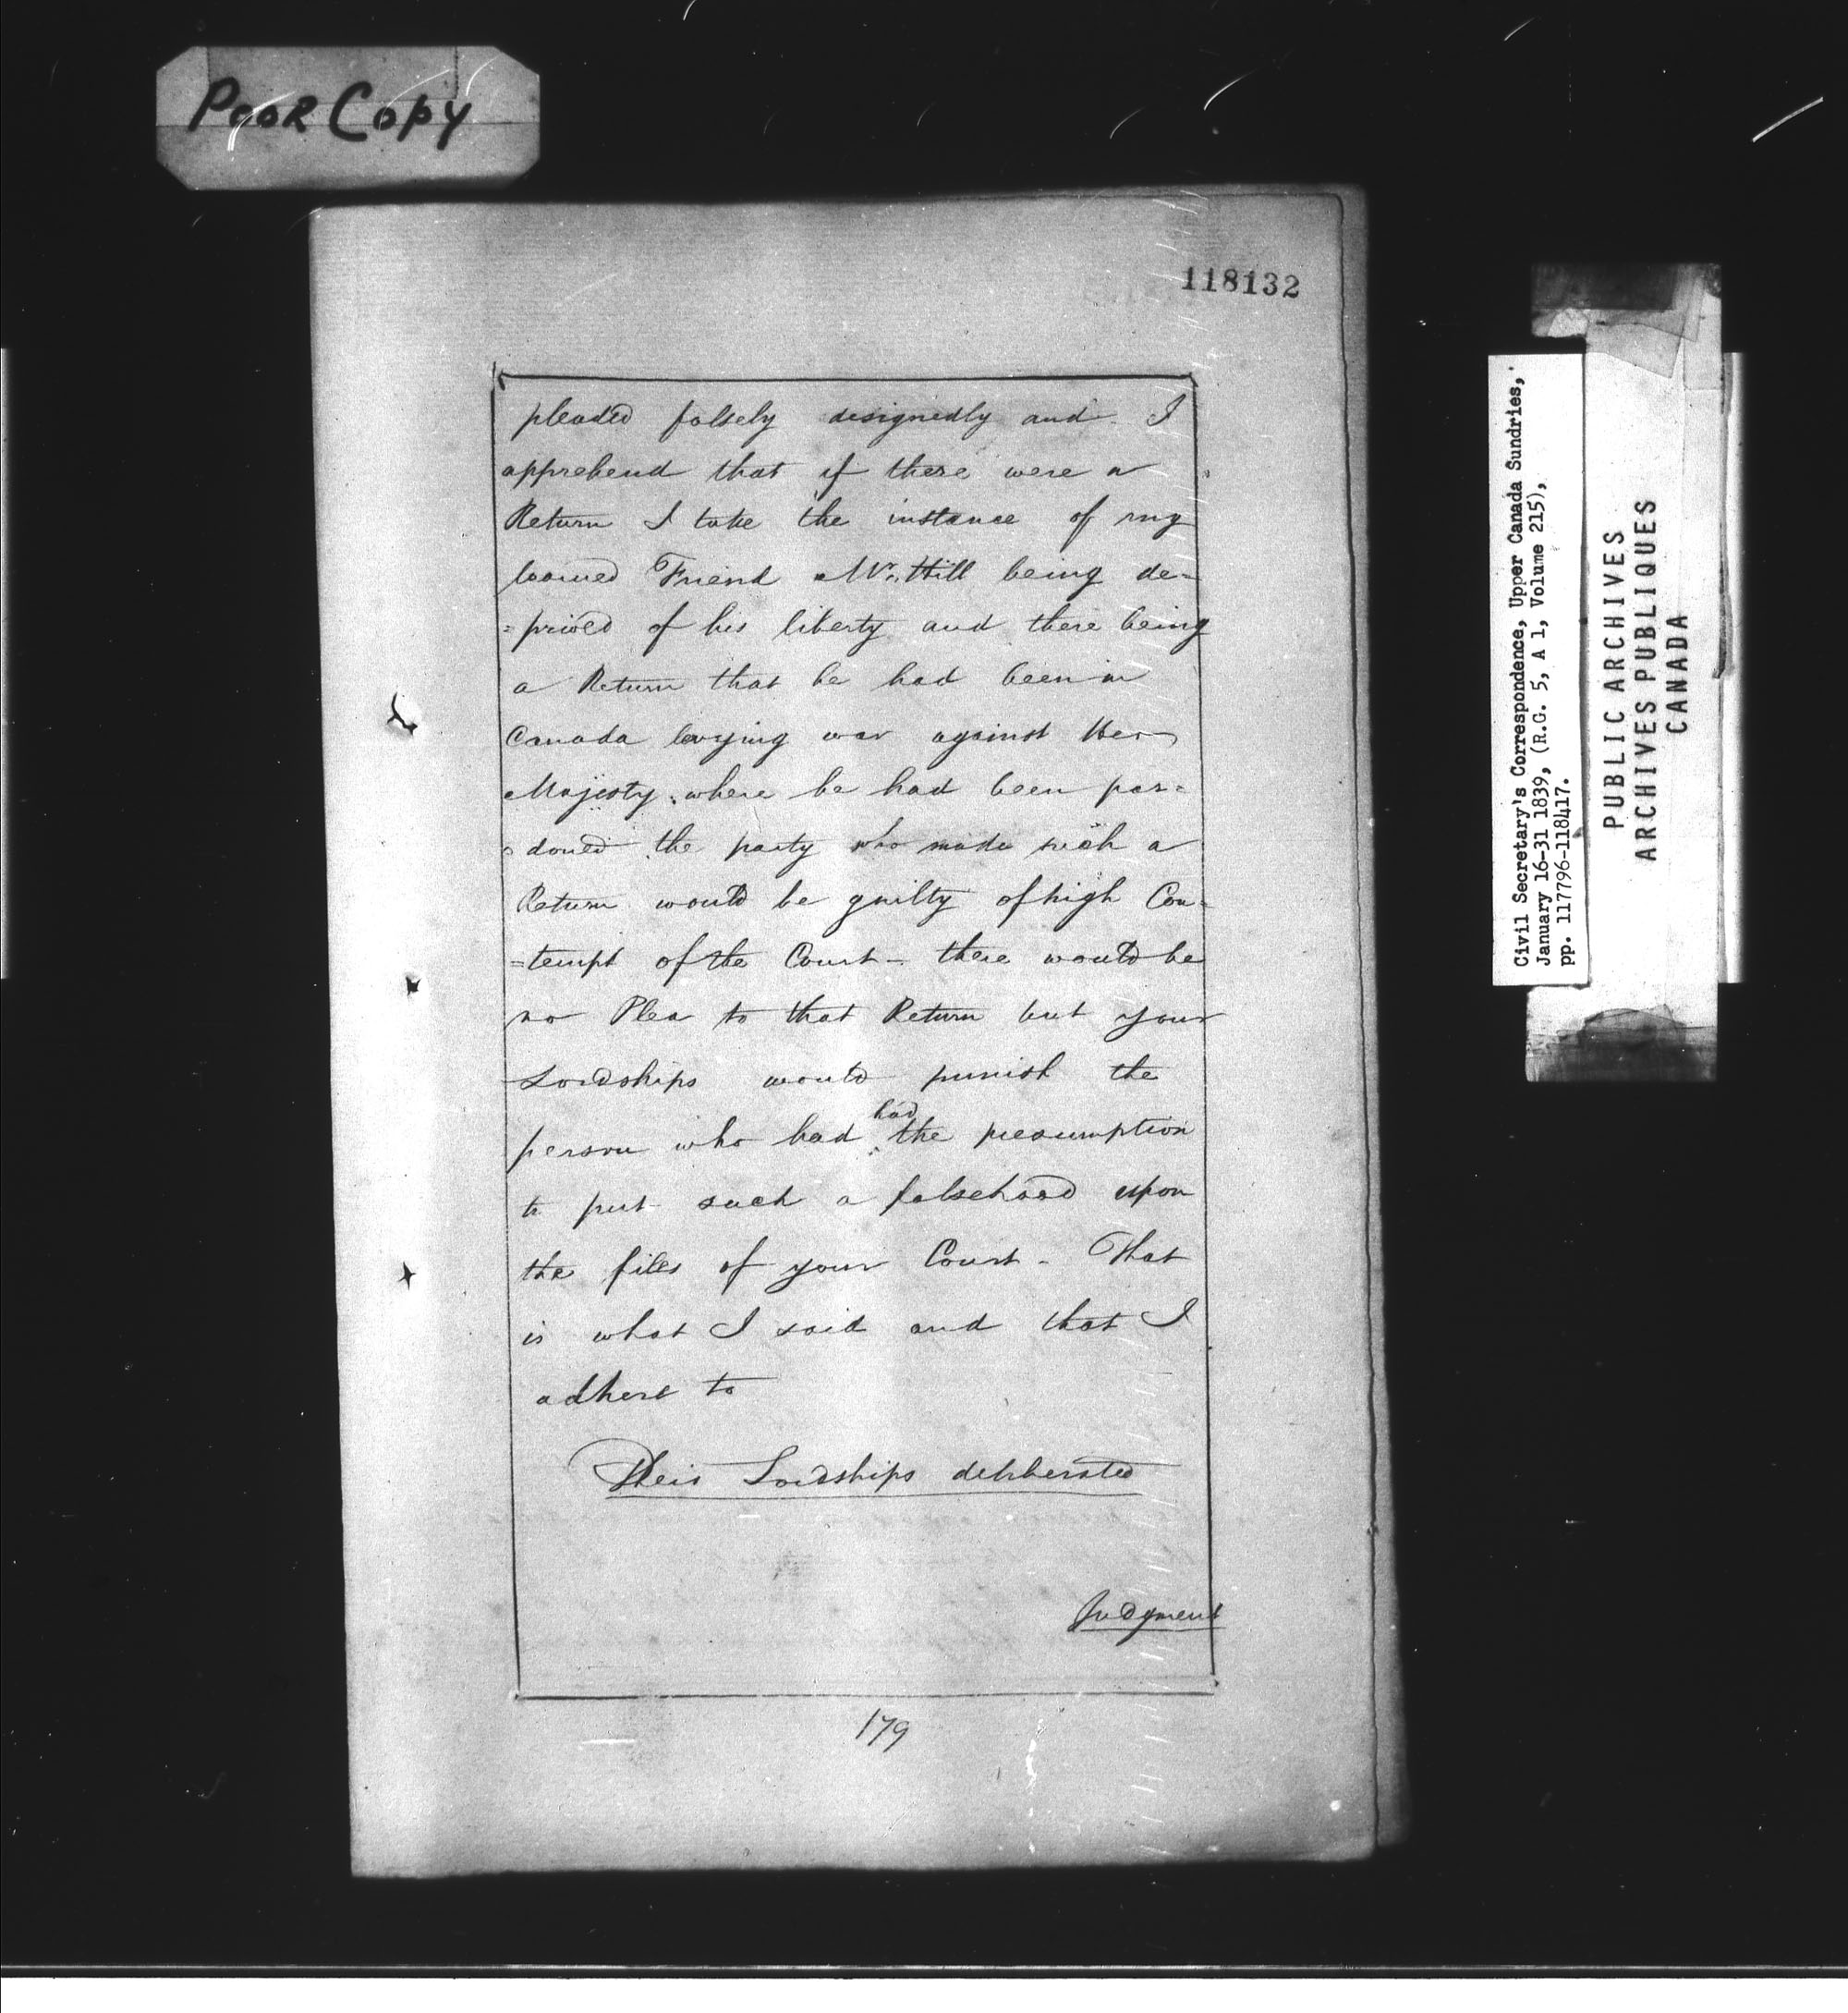 Poor Copy
118132
pleaded falsely designedly and I
apprehend that if there were a
Return I take the instance of my
learned Friend Mr. Hill being de=
=prived of his liberty and there being
a Return that he had been in
Canada levying war against Her
Majesty where he had been par=
=doned the party who made such a
Return would be guilty of high Con=
=tempt of the Court – there would be
no Plea to that Return but your
Lordships would punish the
had
person who had the presumption
to put such a falsehood upon
the files of your Court – That
is what I said and that I
adhere to
Their Lordships deliberated
Judgment
179
Civil Secretary's Correspondence, Upper Canada Sundries,
January 16-31 1839, (R.G. 5, A 1, Volume 215),
pp. 117796-118417.
PUBLIC ARCHIVES
ARCHIVES PUBLIQUES
CANADA